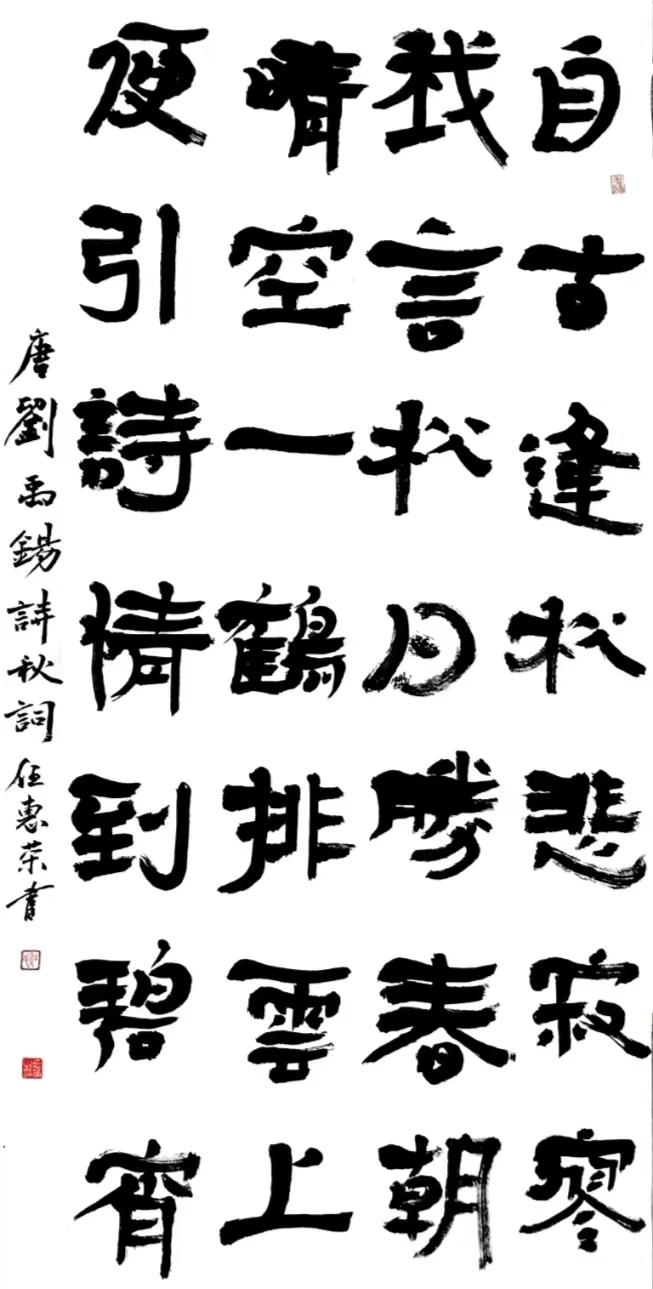 自古逢秋悲寂寥
我言秋日勝春朝
晴空一鶴排雲上
便引詩情到碧宵
唐劉禹錫詩秋詞 任惠荣書